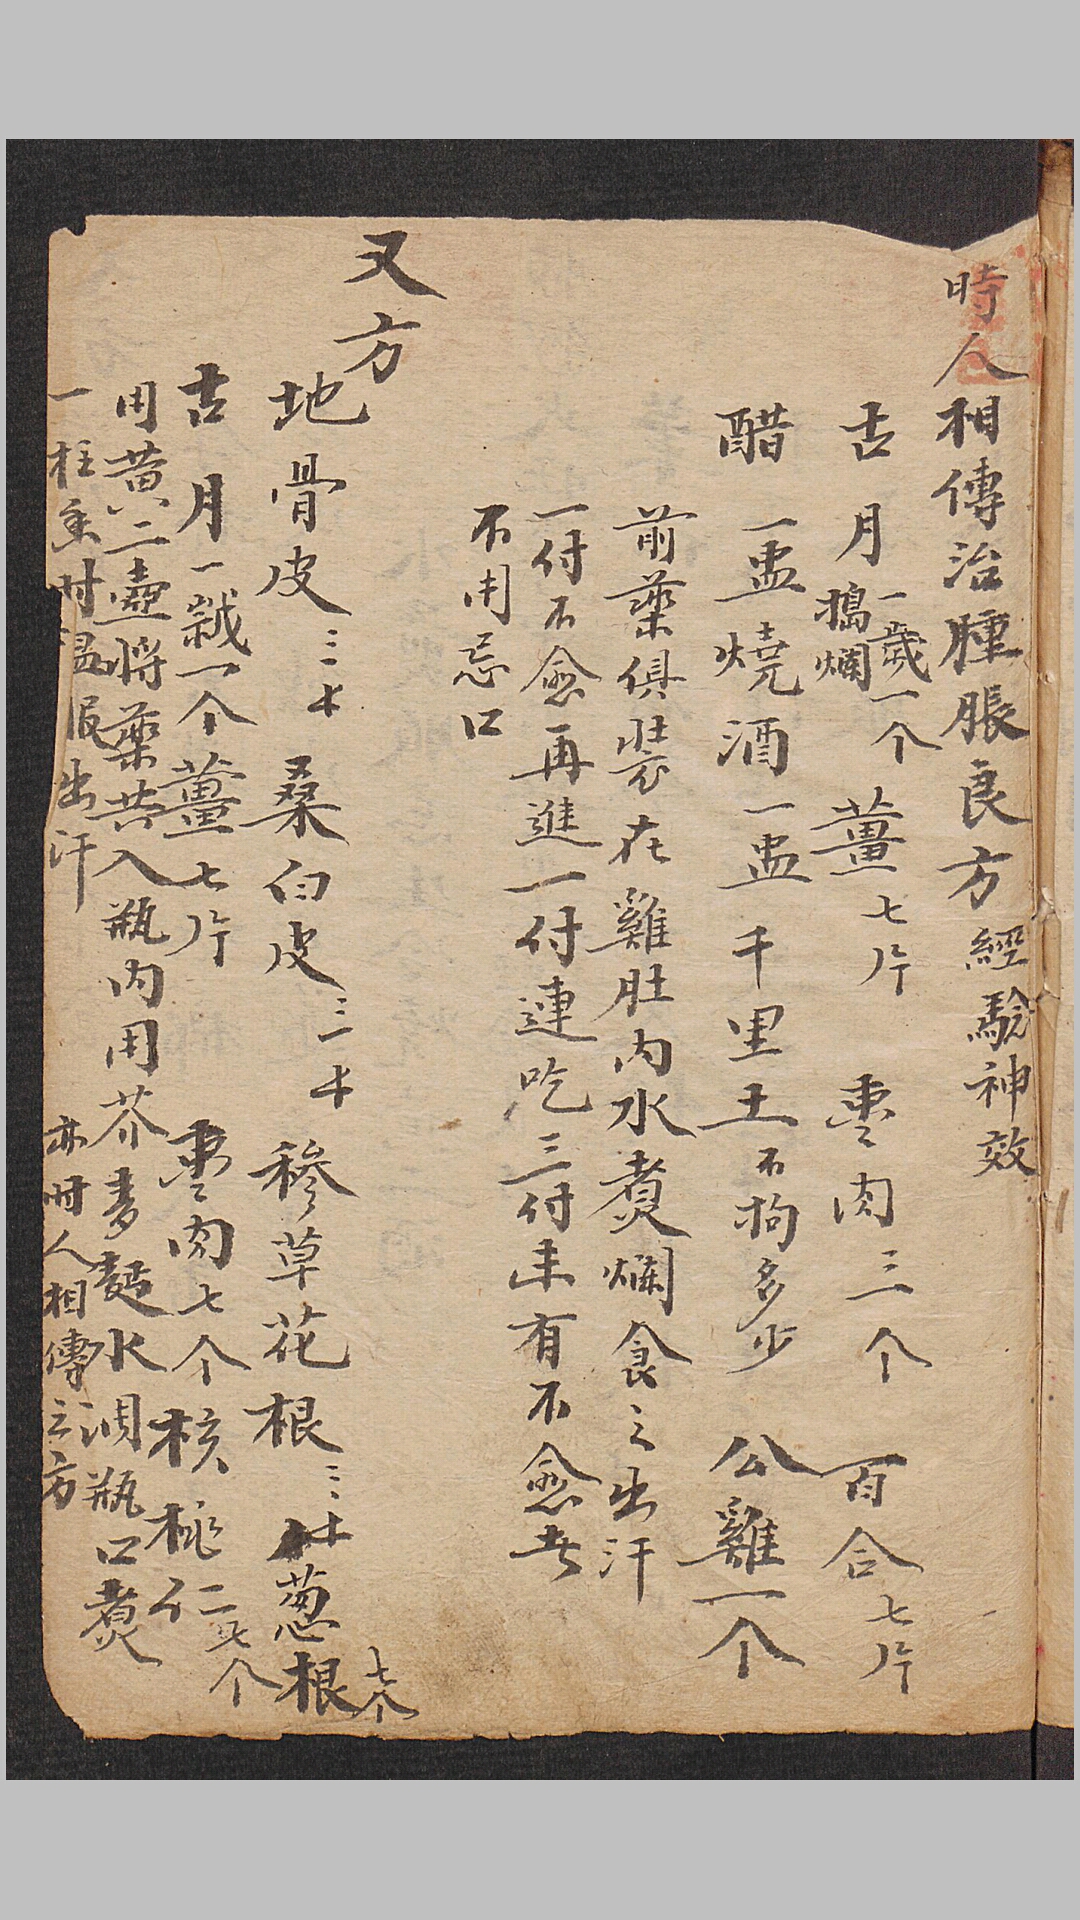 時人相傳治腫脹良方經驗神效
古月一歲一个搗爛 薑七片 枣肉三个 百合七片
醋一盅燒酒一盅千里土不拘多少 公雞一个
前藥俱裝在雞肚內水煑爛食之出汗
一付不愈再進一付連吃三付未有不愈者
不用忌口
又方
地骨皮三十 桑白皮三十 穇草花根三十 葱根七个
古月一歲一个薑七片 枣肉七个核桃仁二七个
用黃二壺將藥共入瓶內用芥麥麵水調瓶口煑
一柱香時溫服出汗 亦時人相傳之方